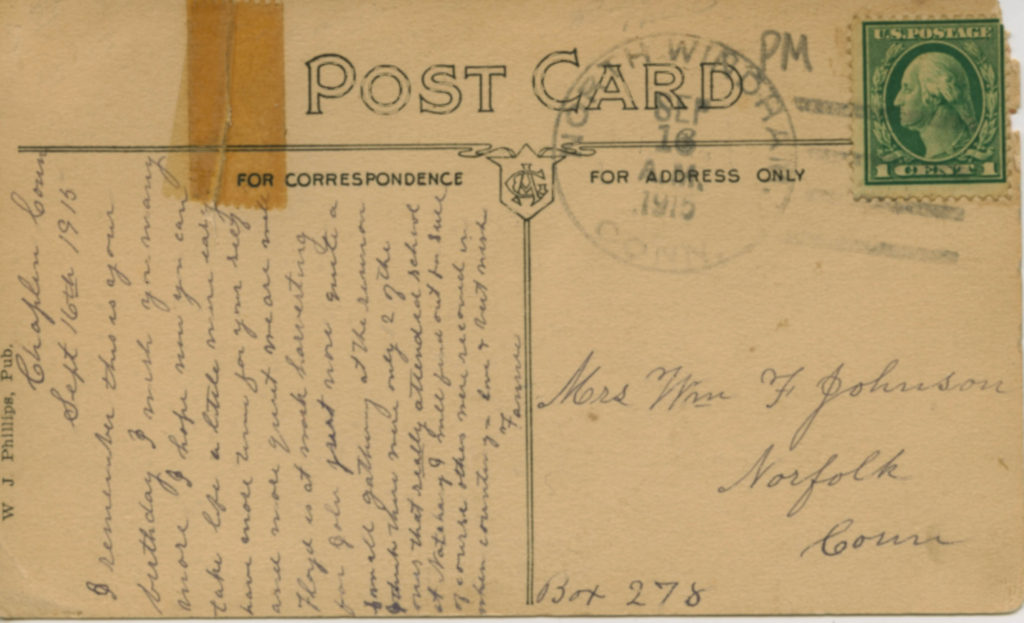 POST CARD
FOR CORRESPONDENCE
FOR ADDRESS ONLY
U.S. POSTAGE
1 CENT 1
NORTH WINDHAM
SEP
16
A.M.
1915
CONN.
PM
W J Phillips, Pub.
Chaplin Conn
Sept 16th 1915
I remember this is your
birthday I wish you many
more I hope now you can
take life a little more easy
have more time for your self
and more quiet we are well
Floyd is at work harvesting
for John great we quite a
small gathering at the reunion
think there were only 2 of the
ones that really attended school
at Natchaug I will find out for sure
of course others were reconed in
when counting - love & best wish
Fannie
Mrs Wm F Johnson
Norfolk
Conn
Box 278